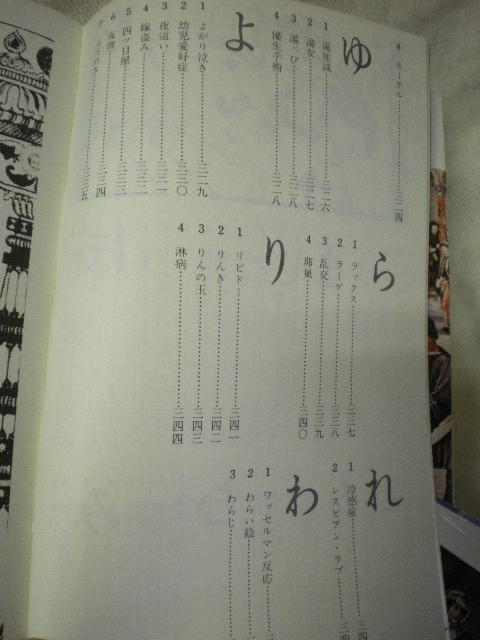 4 モーテル…………二二四
ゆ
1 湯加減…………二二六
2 湯女…………二二七
3 湯っぴ…………二二八
4 優生手術…………二二八
よ
1 よがり泣き…………二二九
2 幼児愛好症…………二三〇
3 夜這い…………二三一
4 嫁盗み…………二三二
5 四ッ目屋…………二三三
6 夜伽…………二三
ら
1 ラックス…………二三七
2 ラーゲ…………二三八
3 乱交…………二三九
4 卵巣…………二四〇
り
1 リビドー…………二四一
2 りんき…………二四二
3 りんの玉…………二四三
4 淋病…………二四四
れ
1 冷感症…………
2 レスビアン・ラブ…………
わ
1 ワッセルマン反応…………
2 わらい絵…………
3 わらじ…………